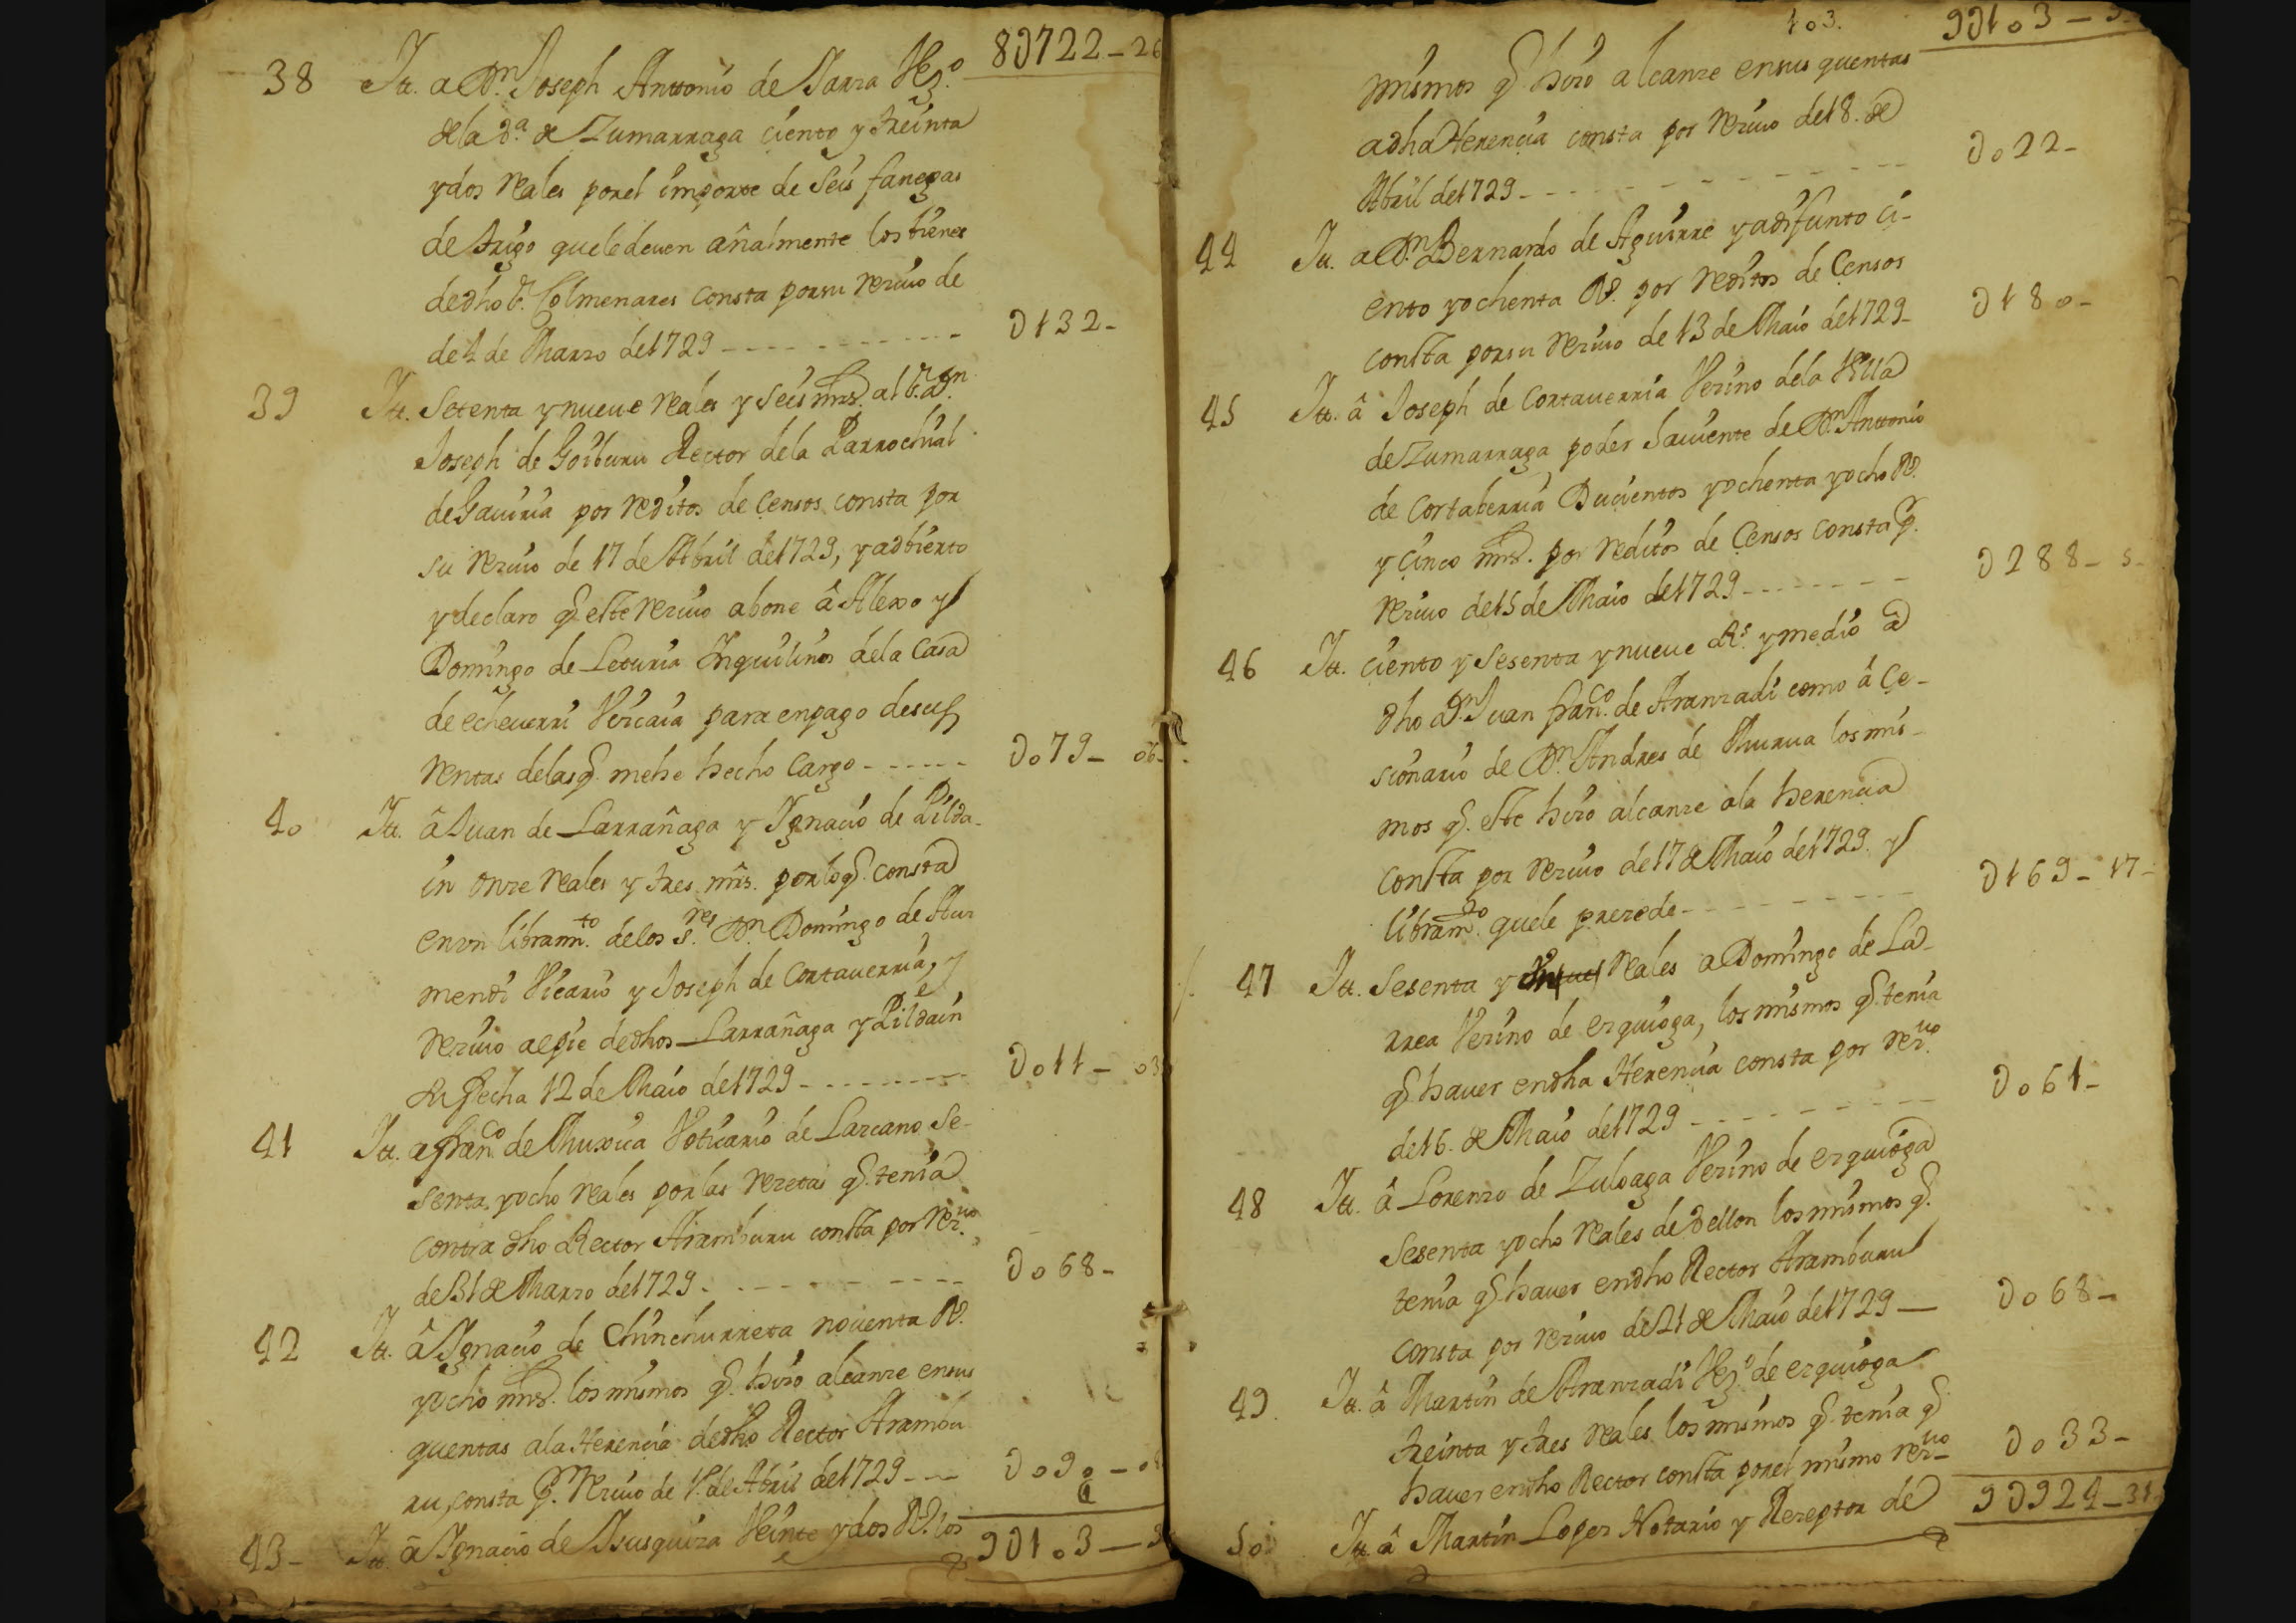 8U722-26
38 Itt. a Dn. Joseph Anttonio de Sarra Vezº
de la va. de Zumarraga ciento y treinta
y dos reales por el importe de seis fanegas
de trigo que le deven añalmente los bienes
de dho Sr. Colmenares consta por su rezivo de
de 2 de Marzo de 1729 - - - U132-
39 Itt. Setenta y nueve reales y seis mrs. al Sr. Dn.
Joseph de Goiburu Rector de la Parrochial
de Gaviria por reditos de Censos consta por
su rezivo de 17 de Abril de 1729, y adbierto
y declaro q. este rezivo abone â Alexo y
Domingo de Leturia Inquilinos de la Casa
de echeverri Vizcaia para en pago de sus
rentas de las q. me he hecho Cargo - - - Uo79- 06-
40 Itt. â Juan de Larrañaga y Ignacio de Pilda-
in onze reales y tres mrs. por lo q. consta
en vn libramto. de los Sres. Dn. Domingo de Aur
mendi Vicario y Joseph de Cortaverria, y
rezivo al pie de dhos Larrañaga y Pildain
su fecha 12 de Maio de 1729 - - - Uo11- 03
41 Itt. a franco. de Muxica Voticario de Lazcano Se-
senta y ocho reales por las rezetas q. tenia
contra dho Rector Aramburu consta por rezvo.
de 31 de Marzo de 1729 - - - Uo68-
42 Itt. â Ignacio de Chinchurreta noventa Rs.
y ocho mrs. los mismos q. hizo alcanze en sus
quentas a la Herencia de dho Rector Arambu
ru, consta p. rezivo de 1º de Abril de 1729 - - - Uo9o-
43- Itt. â Ignacio de Ysusquiza Veinte y dos Rs. los
9U1o3-
1o3.
9U1o3-3
mismos q. hizo alcanze en sus quentas
a dha Herencia consta por rezivo de 18. de
Abril de 1729 - - - Uo22-
44 Itt. a Dn. Bernardo de Aguirre ya difunto ci-
ento y ochenta Rs. por reditos de Censos
consta por su rezivo de 13 de Maio de 1729- U18o-
45 Itt. â Joseph de Cortaverria Vezino de la Villa
de Zumarraga poder haviente de Dn. Anttonio
de Cortaberria Ducientos y ochenta y ocho Rs.
y Cinco mrs. por reditos de Censos consta p.
rezivo de 15 de Maio de 1729 - - - U288- 5-
46 Itt. ciento y sesenta y nueve Rs. y medio a
dho Dn. Juan franco. de Aranzadi como â Ce-
sionario de Dn. Andres de Murua los mis-
mos q. este hizo alcanze a la herencia
consta por rezivo de 17 de Maio de 1729. y
libramto. que le prezede - - - U169- 17-
47 Itt. Sesenta y reales a Domingo de La-
rrea Vezino de ezquioga, los mismos q. tenia
q. haver en dha Herencia consta por rezvo.
de 16. de Maio de 1729 - - - Uo61-
48 Itt. â Lorenzo de Zuloaga Vezino de ezquioga
Sesenta y ocho reales de vellon los mismos q.
tenia q. haver en dho Rector Aramburu
consta por rezivo de 21 de Maio de 1729 - Uo68-
49. Itt. â Martin de Aranzadi Vezº de ezquioga
treinta y tres reales los mismos q. tenia q.
haver en dho Rector consta por el mismo rezvo- Uo33-
50 Itt. â Martin Lopez Notario y Rezeptor de 9U924-31